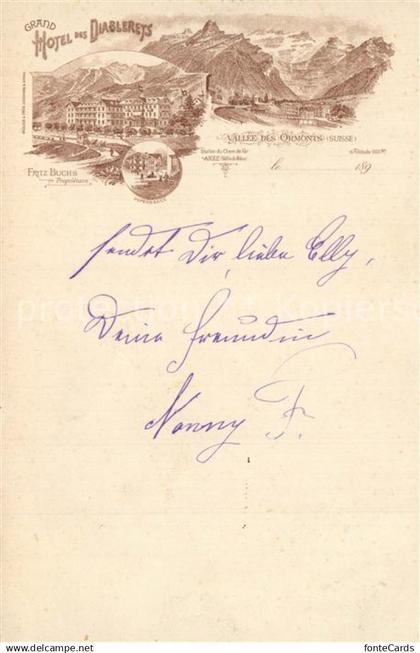 GRAND
HOTEL DES DIABLERETS
VALLÉE DES ORMONTS (SUISSE)
Station du Chemin de fer
AIGLE
Altitude
FRITZ BUCHS
Propriétaire
le 189
sendet Dir, liebe Elly,
Deine Freundin
Nanny F.
delcampe.net
fonteCards